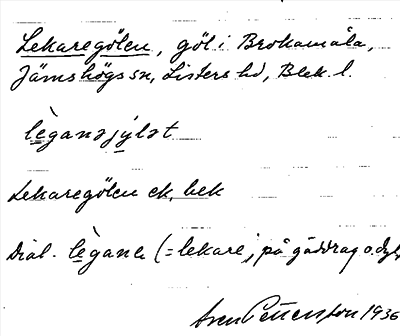 Lekaregölen, göl i Brokamåla,
Jämshögs sn, Listers hd, Blek. l.
lèganəjýlət
Lekaregölen ek, bek
Dial. lègana (= lekare, på gäddrag o.dyl.
Sven Pettersson 1936